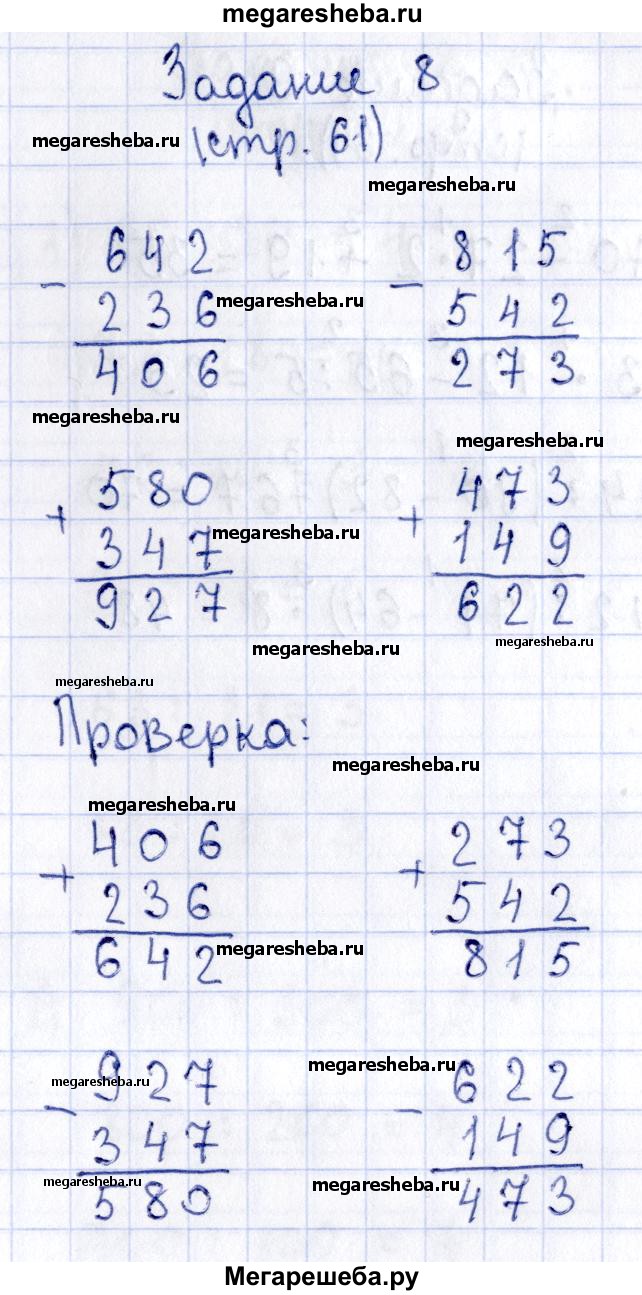 megaresheba.ru
Задание 8
megaresheba.ru
(стр. 61)
megaresheba.ru
642 815
- -
236 megaresheba.ru 542
406 273
megaresheba.ru
megaresheba.ru
580 473
+ megaresheba.ru +
347 149
927 622
megaresheba.ru megaresheba.ru
megaresheba.ru
Проверка:
megaresheba.ru
megaresheba.ru
406 273
+ +
236 542
642 megaresheba.ru 815
megaresheba.ru
megaresheba.ru
927 622
- -
347 149
megaresheba.ru megaresheba.ru
580 473
Мегарешеба.ру